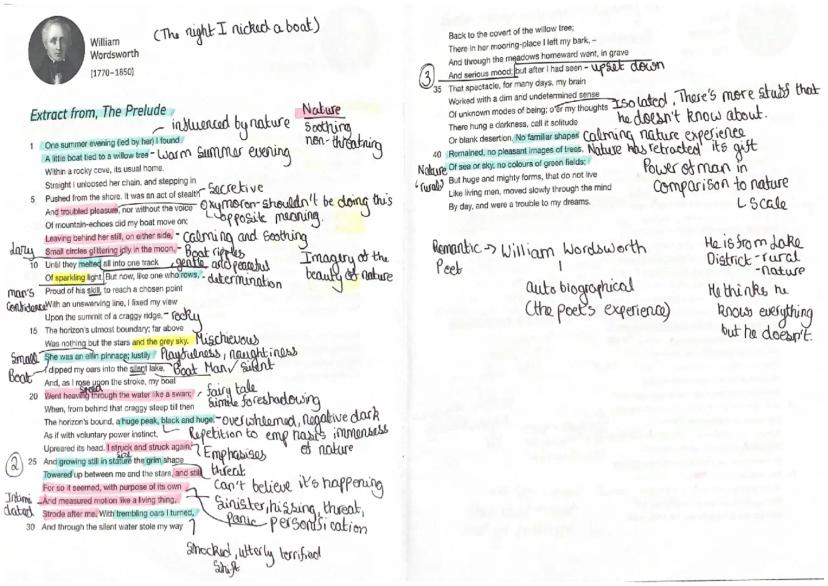 (The night I nicked a boat)
William
Wordsworth
(1770–1850)
Extract from, The Prelude
Nature
Soothing
non-threatning
influenced by nature
1 One summer evening (led by her) I found
A little boat tied to a willow tree - Warm Summer evening
Within a rocky cove, its usual home.
Straight I unloosed her chain, and stepping in
Secretive
5 Pushed from the shore. It was an act of stealth
And troubled pleasure, nor without the voice
Oxymoron - Shouldn't be doing this
opposite meaning.
Of mountain-echoes did my boat move on;
Leaving behind her still, on either side, - Calming and Soothing
Small circles glittering idly in the moon, - Boat ripples
10 Until they melted all into one track
gentle and peaceful
Imagery of the
beauty of nature
Of sparkling light. But now, like one who rows, - determination
man's
Confidence
Proud of his skill, to reach a chosen point
With an unswerving line, I fixed my view
Upon the summit of a craggy ridge, - rocky
15 The horizon's utmost boundary; far above
Was nothing but the stars and the grey sky. Mischievous
Small
Boat
She was an elfin pinnace; lustily Playfulness, naughtiness
I dipped my oars into the silent lake, Boat Man / Silent
And, as I rose upon the stroke, my boat
20 Went heaving through the water like a swan; fairy tale
Simile foreshadowing
When, from behind that craggy steep till then
The horizon's bound, a huge peak, black and huge, - overwhelmed, negative dark
As if with voluntary power instinct,
Repetition to emphasis immensess
of nature
Upreared its head. I struck and struck again, Emphasises
2
25 And growing still in stature the grim shape
threat
Towered up between me and the stars, and still
For so it seemed, with purpose of its own
Can't believe it's happening
Intimi
dated
And measured motion like a living thing,
Sinister, hissing, threat,
Panic personification
Strode after me. With trembling oars I turned,
30 And through the silent water stole my way
Shocked, utterly terrified
Shift
Back to the covert of the willow tree;
There in her mooring-place I left my bark, –
And through the meadows homeward went, in grave
3
And serious mood; but after I had seen - upset down
35 That spectacle, for many days, my brain
Worked with a dim and undetermined sense
Isolated, There's more stuff that
he doesn't know about.
Of unknown modes of being; o'er my thoughts
There hung a darkness, call it solitude
Or blank desertion. No familiar shapes Calming nature experience
40 Remained, no pleasant images of trees, Nature has retracted its gift
Nature
'rural'
Of sea or sky, no colours of green fields;
But huge and mighty forms, that do not live
Like living men, moved slowly through the mind
By day, and were a trouble to my dreams.
Power of man in
comparison to nature
Scale
Romantic → William Wordsworth
Poet
autobiographical
(the poet's experience)
He is from Lake
District - rural
- nature
He thinks he
knows everything
but he doesn't.